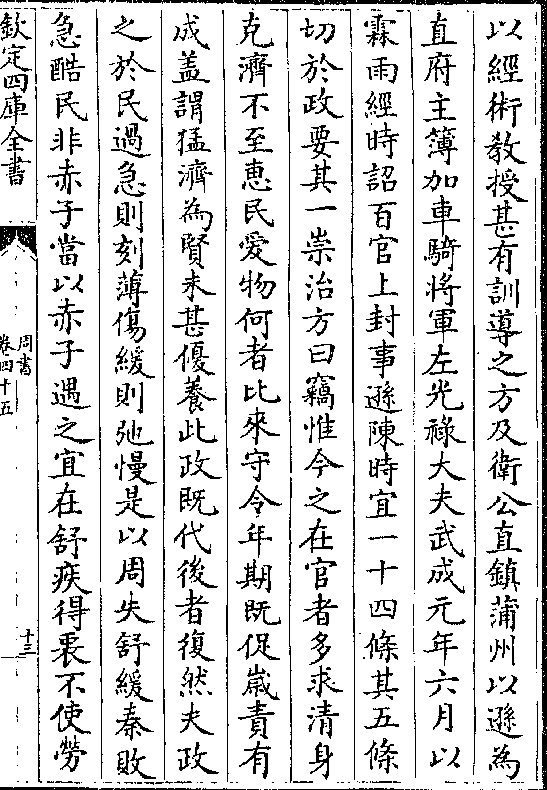 以經術教授甚有訓導之方及衛公直鎮蒲州以遜為
直府主簿加車騎將軍左光祿大夫武成元年六月以
霖雨經時詔百官上封事遜陳時宜一十四條其五條
切於政要其一崇治方曰竊惟今之在官者多求清身
克濟不至惠民愛物何者比來守令年期既促歲責有
成蓋謂猛濟為賢未甚優養此政既代後者復然夫政
之於民過急則刻薄傷緩則弛慢是以周失舒緩秦敗
急酷民非赤子當以赤子遇之宜在舒疾得衷不使勞
欽定四庫全書
周書
卷四十五
十三